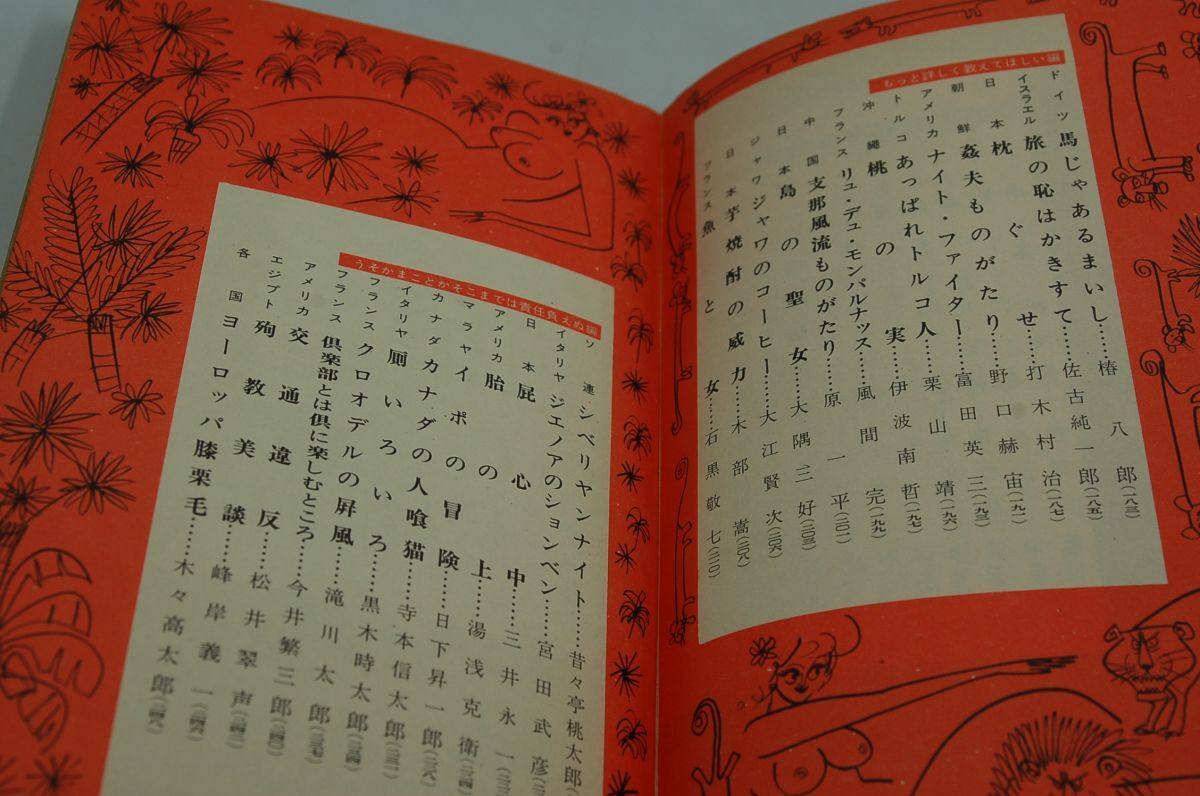 もっと詳しく教えてほしい編
ドイツ 馬じゃあるまいし……椿八郎(一八三)
イスラエル 旅の恥はかきすて……佐古純一郎(一八五)
日本 枕ぐせ……打木村治(一八七)
朝鮮 姦夫ものがたり……野口赫宙(一九一)
アメリカ ナイト・ファイター……富田英三(一九三)
トルコ あっぱれトルコ人……栗山靖(一九六)
沖縄 桃の実……伊波南哲(一九七)
フランス リュ・デュ・モンパルナッス……風間完(一九九)
中国 支那風流ものがたり……原一平(二〇一)
日本 島の聖女……大隅三好(二〇三)
ジャワ ジャワのコーヒー……大江賢次(二〇六)
日本 芋焼酎の威力……木部嵩(二〇八)
フランス 魚と女……石黒敬七(二一〇)
うそかまことかそこまでは責任負えぬ編
ソ連 シベリヤンナイト……昔々亭桃太郎
イタリヤ ジエノアのションベン……宮田武彦
日本 屁心中……三井永一
アメリカ 胎の上……湯浅克衛
マラヤ イポの冒険……日下昇一郎
カナダ カナダの人喰猫……寺本信太郎
イタリヤ 厠いろいろ……黒木時太郎
フランス クロオデルの屛風……滝川太郎
フランス 倶楽部とは倶に楽しむところ……今井繁三郎
アメリカ 交通違反……松井翠声
エジプト 殉教美談……峰岸義一
各国 ヨーロッパ膝栗毛……木々高太郎